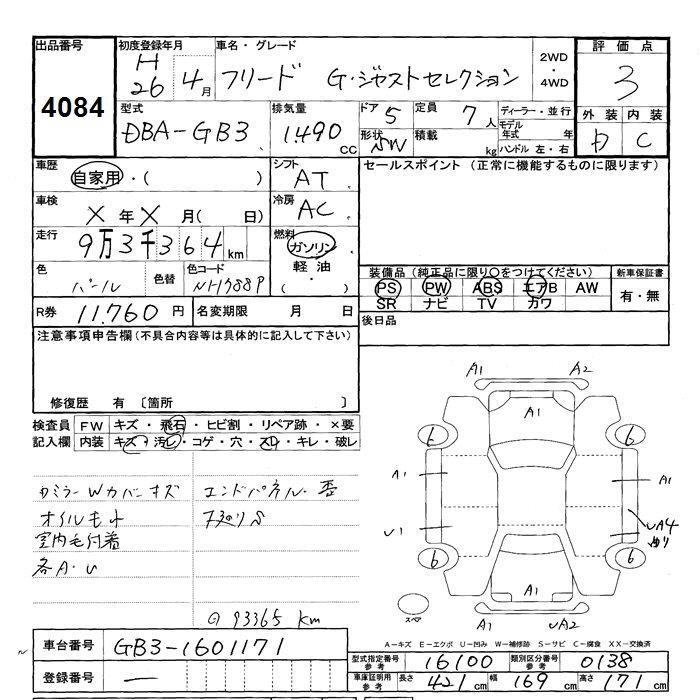 出品番号 4084
初度登録年月 H 26年 4月
車名・グレード フリード G・ジャストセレクション
2WD・4WD
評価点 3
外装 内装 C
型式 DBA-GB3
排気量 1.490 CC
ドア 5
形状 SW
定員 7人
積載 kg
ディーラー・並行
モデル年式 年
ハンドル 左・右
車歴 自家用・( )
シフト AT
セールスポイント(正常に機能するものに限ります)
車検 X年X月( 日)
冷房 AC
走行 9万3千364km
燃料 ガソリン・軽油・( )
色 パール
色替
色コード NH788P
装備品(純正品に限り〇をつけてください)
PS PW ABS エアB AW
SR ナビ TV カワ
新車保証書 有・無
R券 11.760円
名変期限 月 日
後日品
注意事項申告欄(不具合内容等は具体的に記入して下さい)
修復歴 有〔箇所
検査員記入欄
FW キズ・飛石・ヒビ割・リペア跡・×要
内装 キズ・汚レ・コゲ・穴・スレ・キレ・破レ
カミラーWカバーキズ
オイルモレ
室内毛付着
各A・U
エンドパネル・歪
93365 km
A1 A2
A1
6 6
A1 A1
U1 UA4
6 6
A1
スペア
UA2
A-キズ E-エクボ U-凹み W-補修跡 S-サビ C-腐食 XX-交換済
車台番号 GB3-1601171
登録番号 —
型式指定番号 参考 16100
類別区分番号 参考 0138
車庫証明用 参考 長さ 421cm 幅 169cm 高さ 171cm